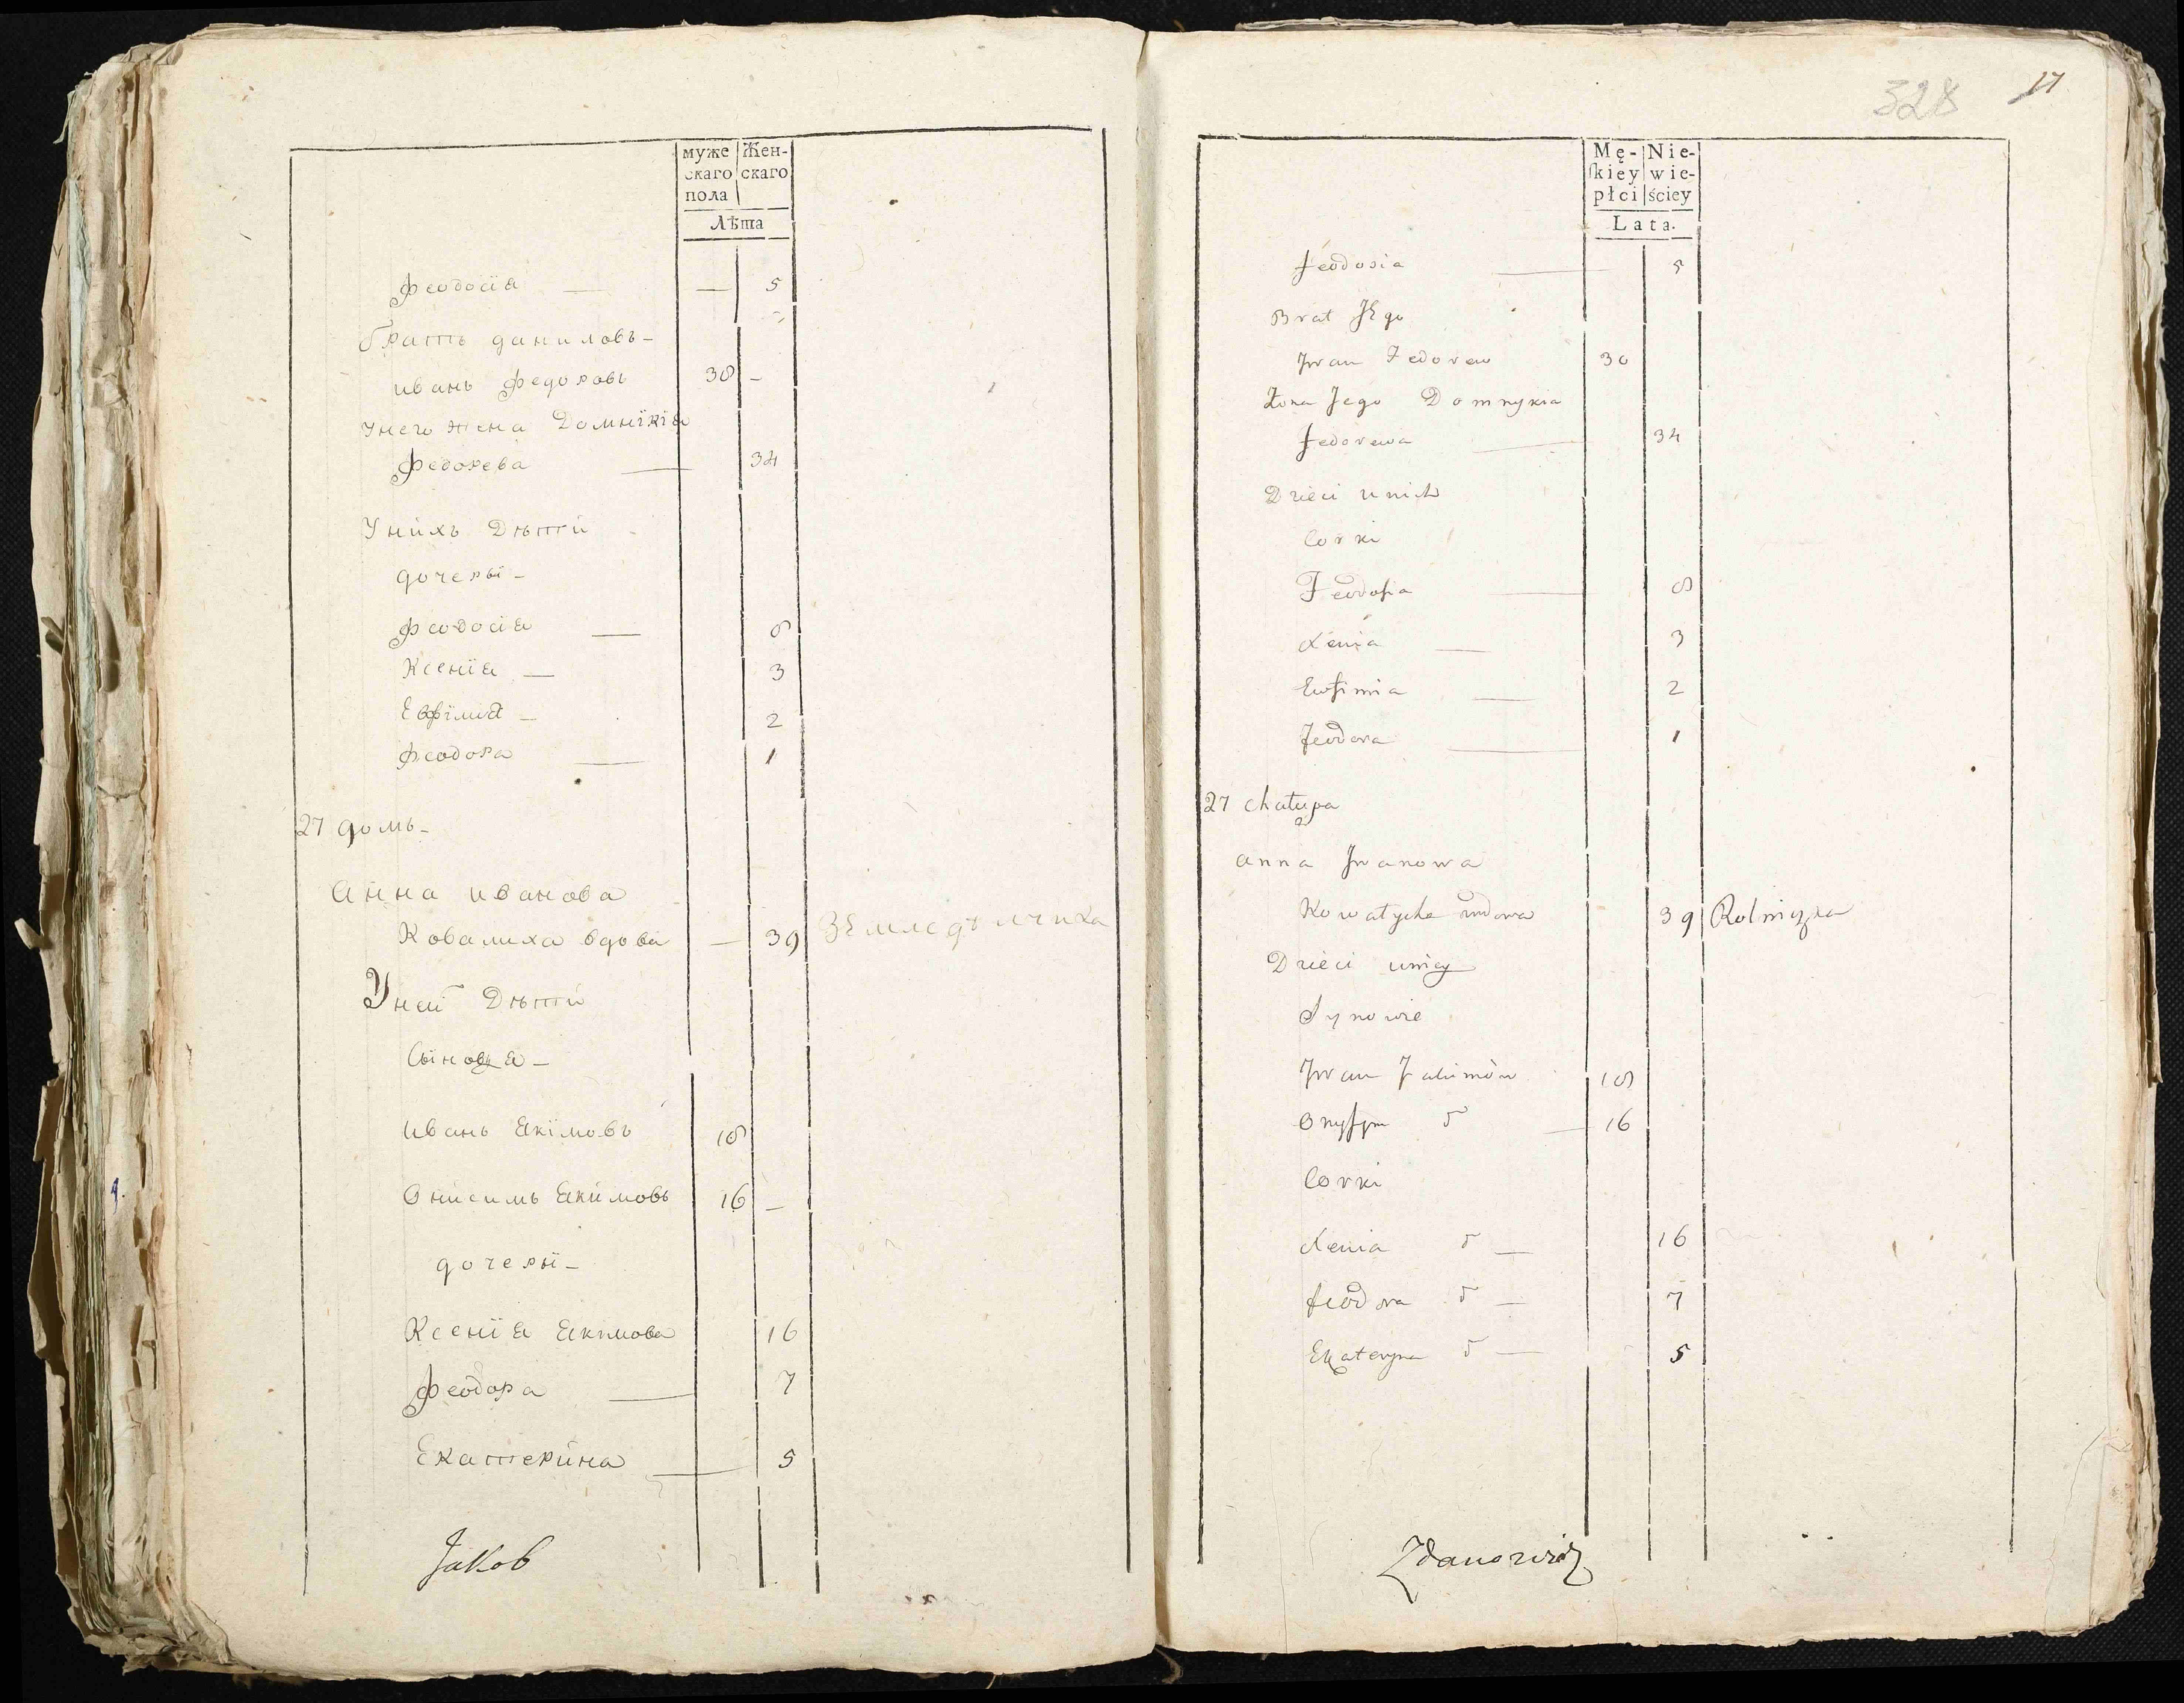 муже Жен-
скаго скаго
пола
Лѣта
Феодосія — — 5
братъ даниловъ -
иванъ Федоровъ 38 -
Унего жена Домнікія
Федорева — 34
Унихъ Дѣти
дочеры -
Феодосія — 8
Ксенія — 3
Евфімія - 2
Феодора — 1
27 домъ -
Анна иванова
Ковалиха вдова — 39 Земледѣлчиха
Уней Дѣти
Сыновя -
иванъ Якімовъ 18
Онисимъ Якимовъ 16 -
дочеры -
Ксенія Якимова 16
Феодора — 7
Екатерина — 5
Jakob
328 17
Mę- Nie-
skiey wie-
płci ściey
Lata.
Feodosia — 5
Brat JEgo
Jwan Fedorew 30
Żona Jego Domnykia
Fedorewa — 34
Dzieci unich
Corki
Feodosia — 8
Xenia — 3
Eufimia — 2
Feodora — 1
27 chałupa
anna Jwanowa
Kowalycha wdowa 39 Rolniczka
Dzieci uniey
Synowie
Jwan Jakimów 18
Onysym — 16
Corki
Xenia — 16
Feodora — 7
Ekateryna — 5
Zdanowicz